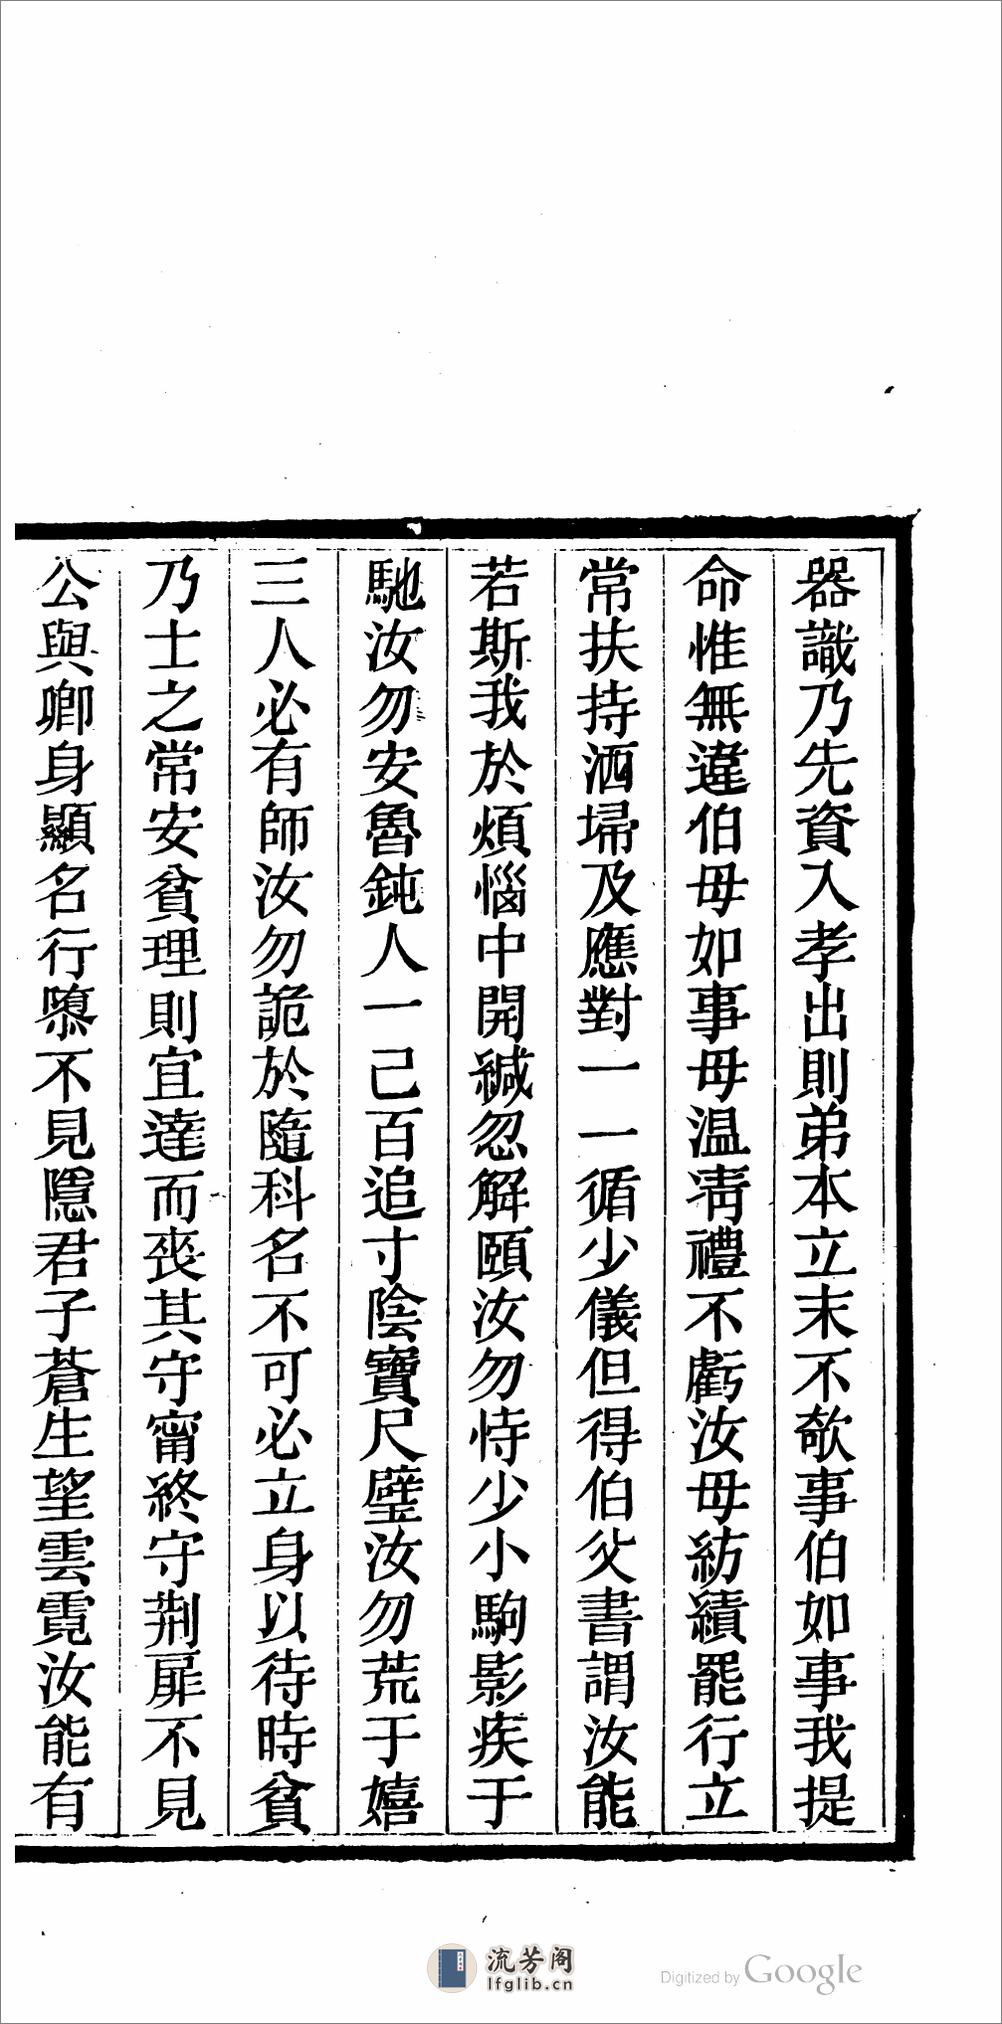 器識乃先資入孝出則弟本立末不欹事伯如事我提
命惟無違伯母如事母温凊禮不虧汝母紡績罷行立
常扶持洒埽及應對一一循少儀但得伯父書謂汝能
若斯我於煩惱中開緘忽解頤汝勿恃少小駒影疾于
馳汝勿安魯鈍人一己百追寸陰寶尺璧汝勿荒于嬉
三人必有師汝勿詭於隨科名不可必立身以待時貧
乃士之常安貧理則宜達而喪其守甯終守荆扉不見
公與卿身顯名行隳不見隱君子蒼生望雲霓汝能有
流芳阁
lfglib.cn
Digitized by Google